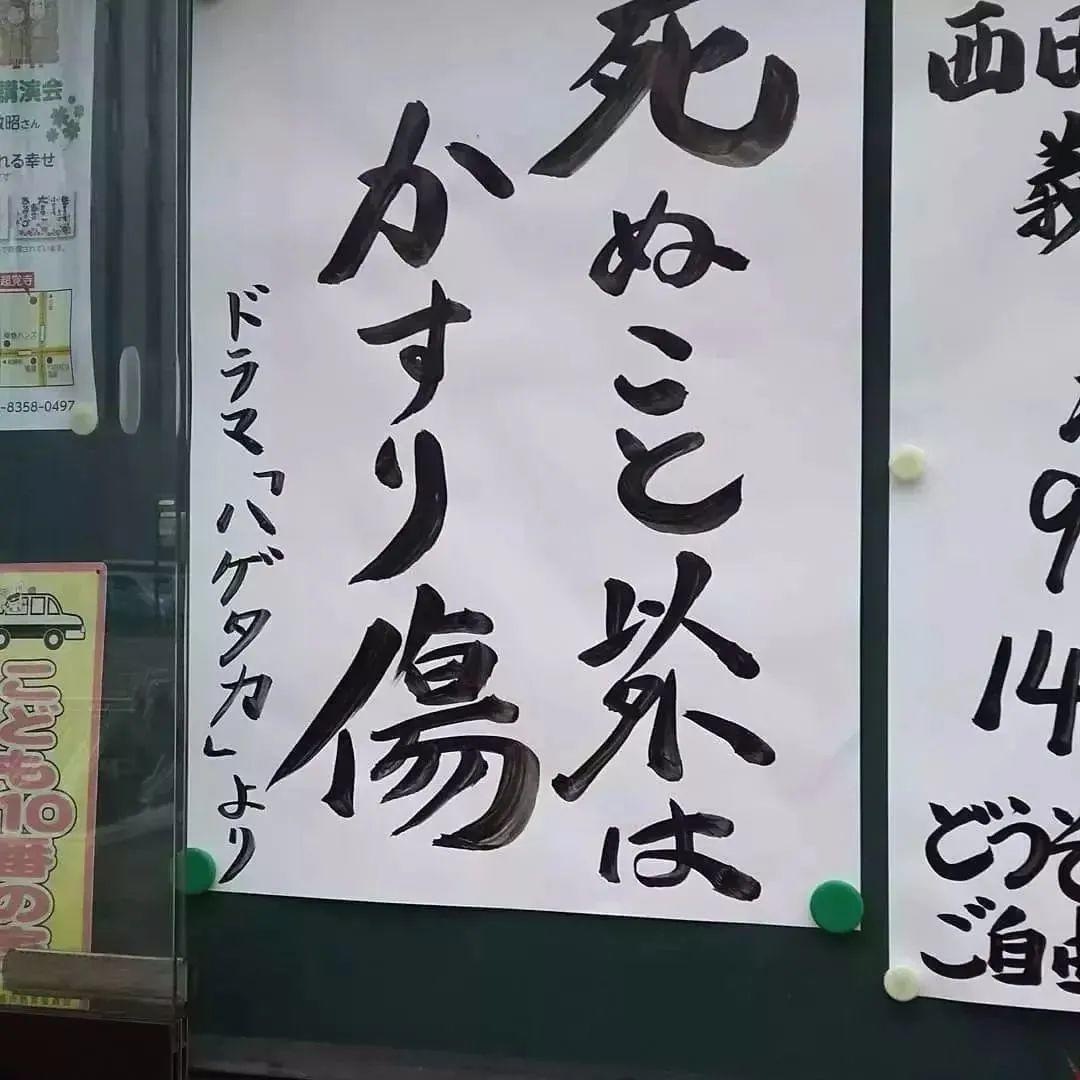 死ぬこと以外は
かすり傷
ドラマ「ハゲタカ」より
西田
義
9
14
どうぞ
ご自由
講演会
敏昭さん
れる幸せ
超覚寺
-8358-0497
こども10番の